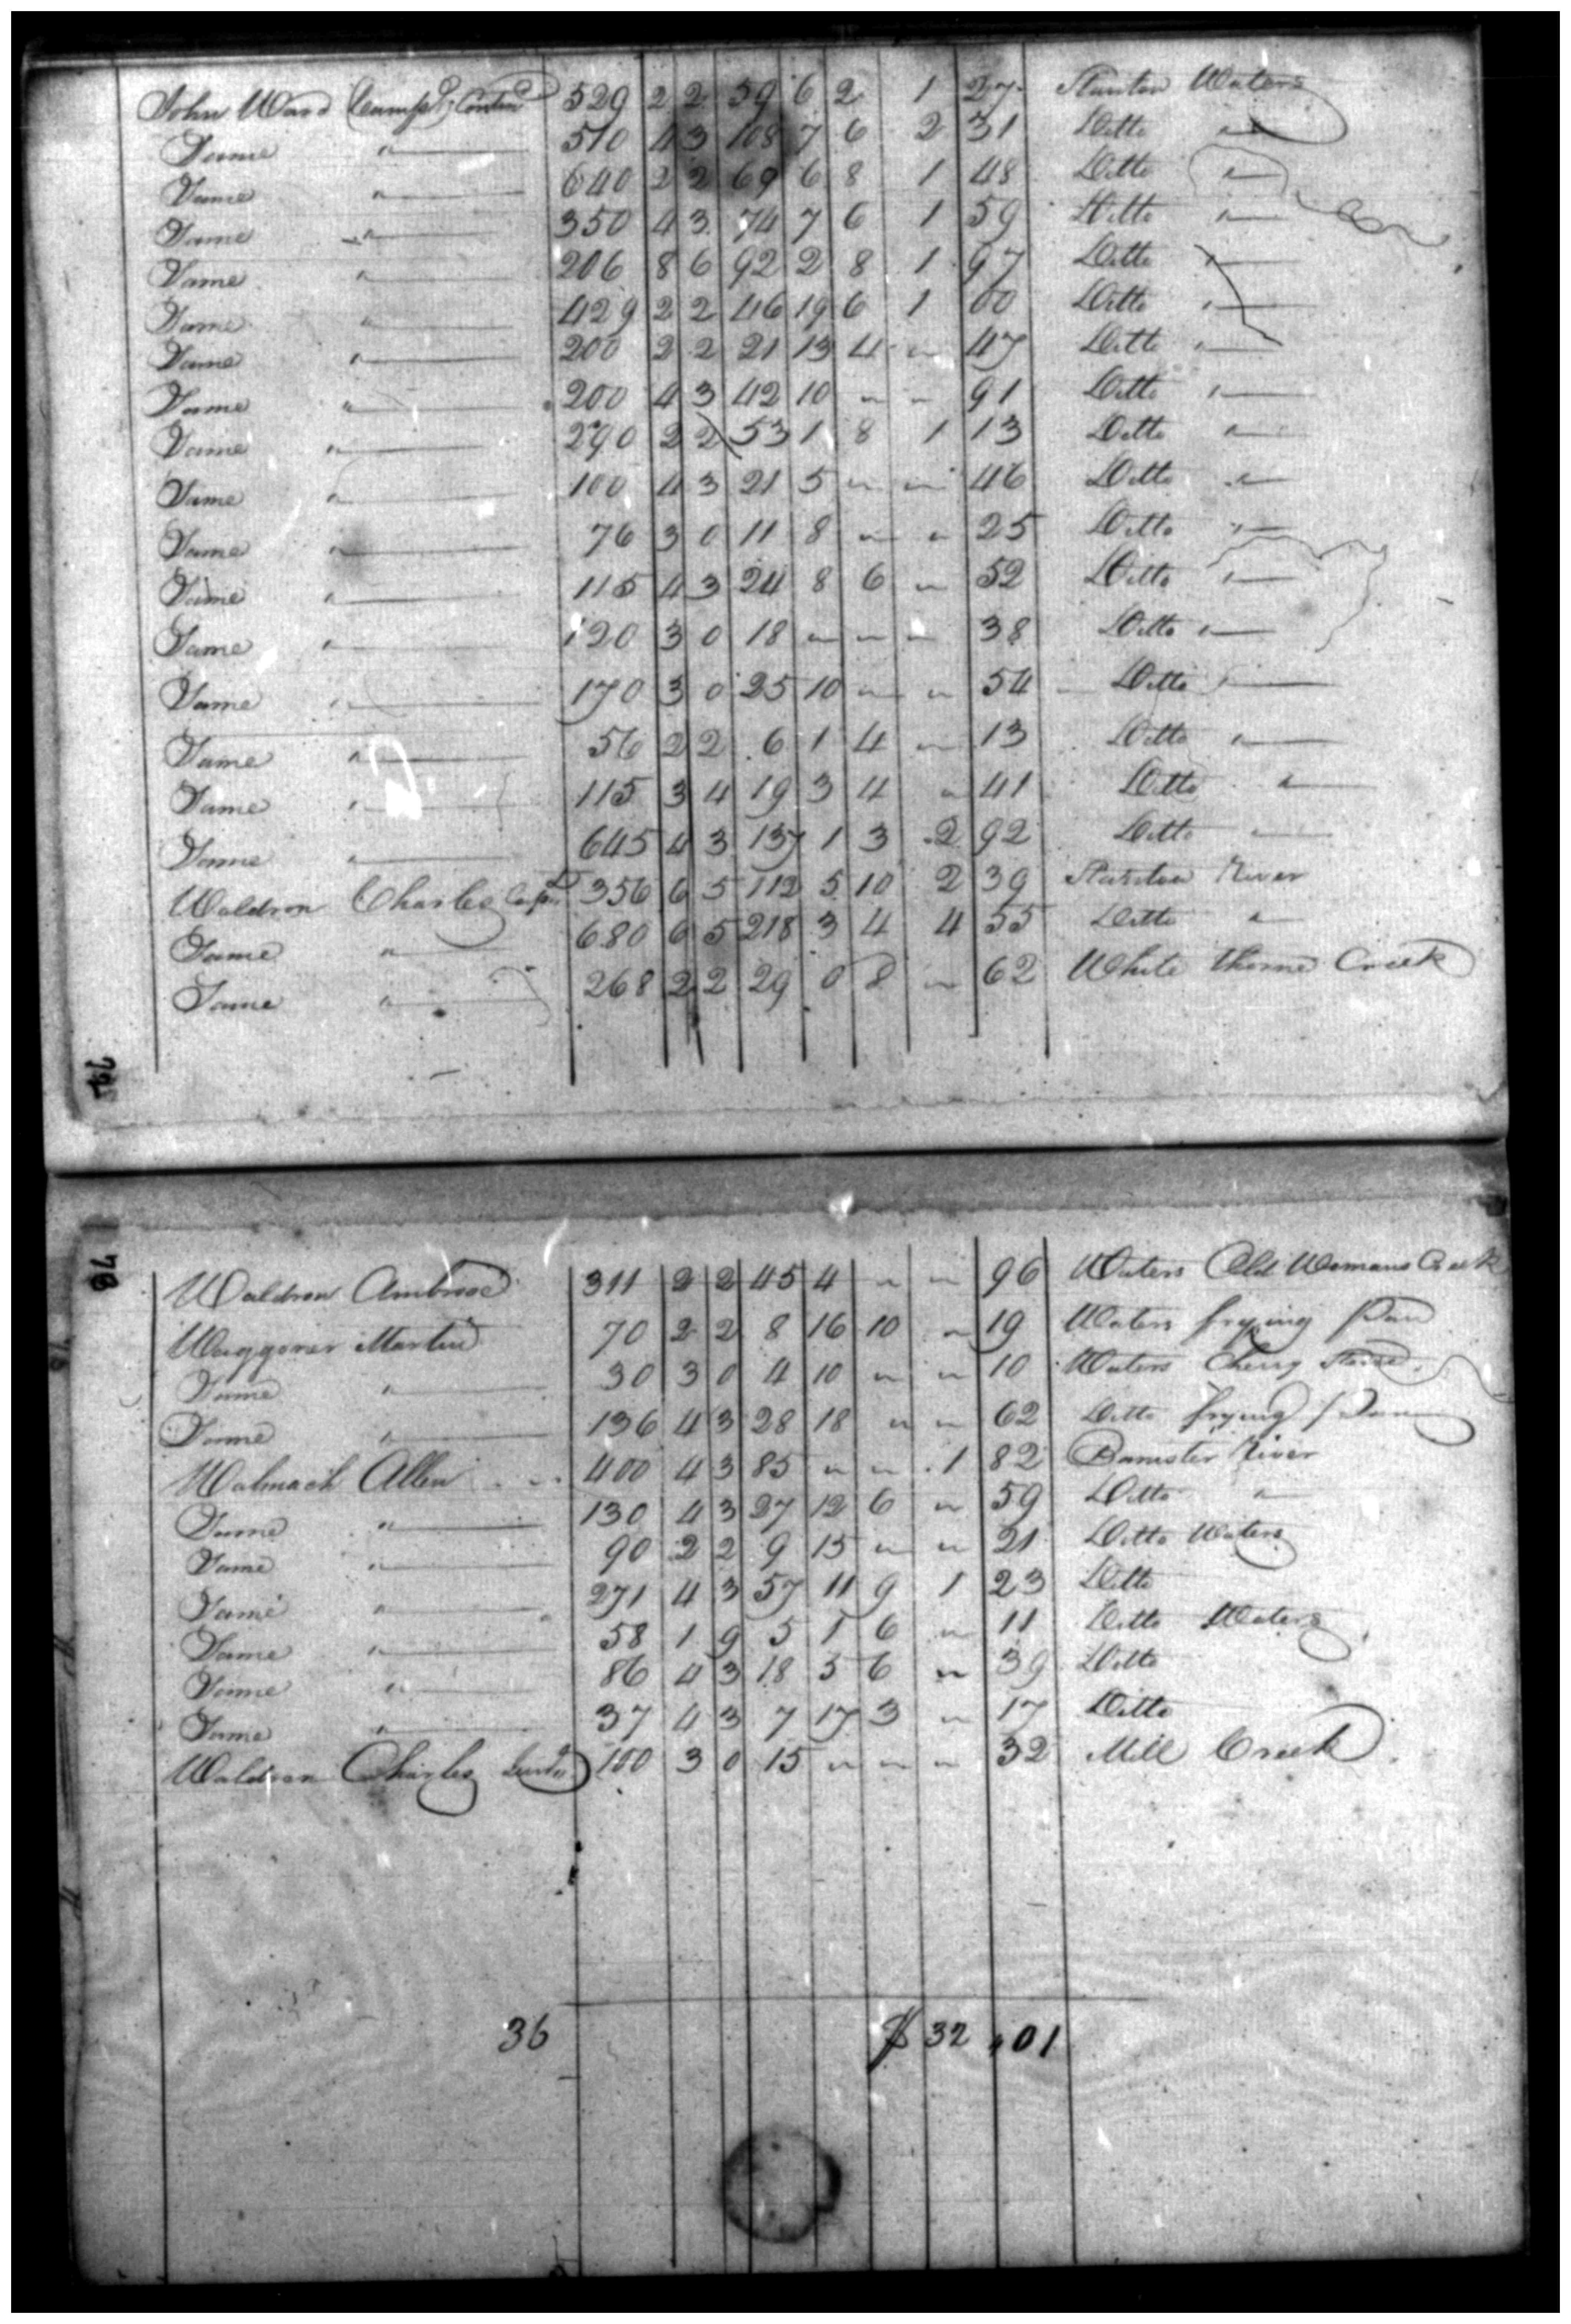 John Ward (Campd) Contind 529 2 2 59 6 2 1 27 Stanton Waters
Same " 510 4 3 108 7 6 2 31 Ditto "
Same " 640 2 2 69 6 8 1 48 Ditto "
Same " 350 4 3 74 7 6 1 59 Ditto "
Same " 206 8 6 92 2 8 1 97 Ditto "
Same " 429 2 2 46 19 6 1 00 Ditto "
Same " 200 2 2 21 13 4 " 47 Ditto "
Same " 200 4 3 42 10 " " 91 Ditto "
Same " 290 2 2 53 1 8 1 13 Ditto "
Same " 100 4 3 21 5 " " 46 Ditto "
Same " 76 3 0 11 8 " " 25 Ditto "
Same " 115 4 3 24 8 6 " 52 Ditto "
Same " 120 3 0 18 " " " 38 Ditto "
Same " 170 3 0 25 10 " " 54 Ditto "
Same " 56 2 2 6 1 4 " 13 Ditto "
Same " 115 3 4 19 3 4 " 41 Ditto "
Same " 645 4 3 137 1 3 2 92 Ditto "
Waldron Charles 356 6 5 112 5 10 2 39 Stanton River
Same " 680 6 5 218 3 4 4 55 Ditto "
Same " 268 2 2 29 0 8 " 62 White thorne Creek
76
Waldron Ambrose 311 2 2 45 4 " " 96 Waters Old Womans Creek
Waggoner Martin 70 2 2 8 16 10 " 19 Waters frying Pan
Same " 30 3 0 4 10 " " 10 Waters Cherry Stone
Same " 136 4 3 28 18 " " 62 Ditto frying Pan
Walmack Allen 400 4 3 85 " " 1 82 Banister River
Same " 130 4 3 27 12 6 " 59 Ditto "
Same " 90 2 2 9 15 " " 21 Ditto Waters
Same " 271 4 3 57 11 9 1 23 Ditto
Same " 58 1 9 5 1 6 " 11 Ditto Waters
Same " 86 4 3 18 5 6 " 39 Ditto
Same " 37 4 3 7 17 3 " 17 Ditto
Waldron Charles 100 3 0 15 " " " 32 Mill Creek
36 $ 32 "01